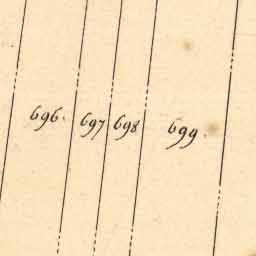 696. 697 698 699.